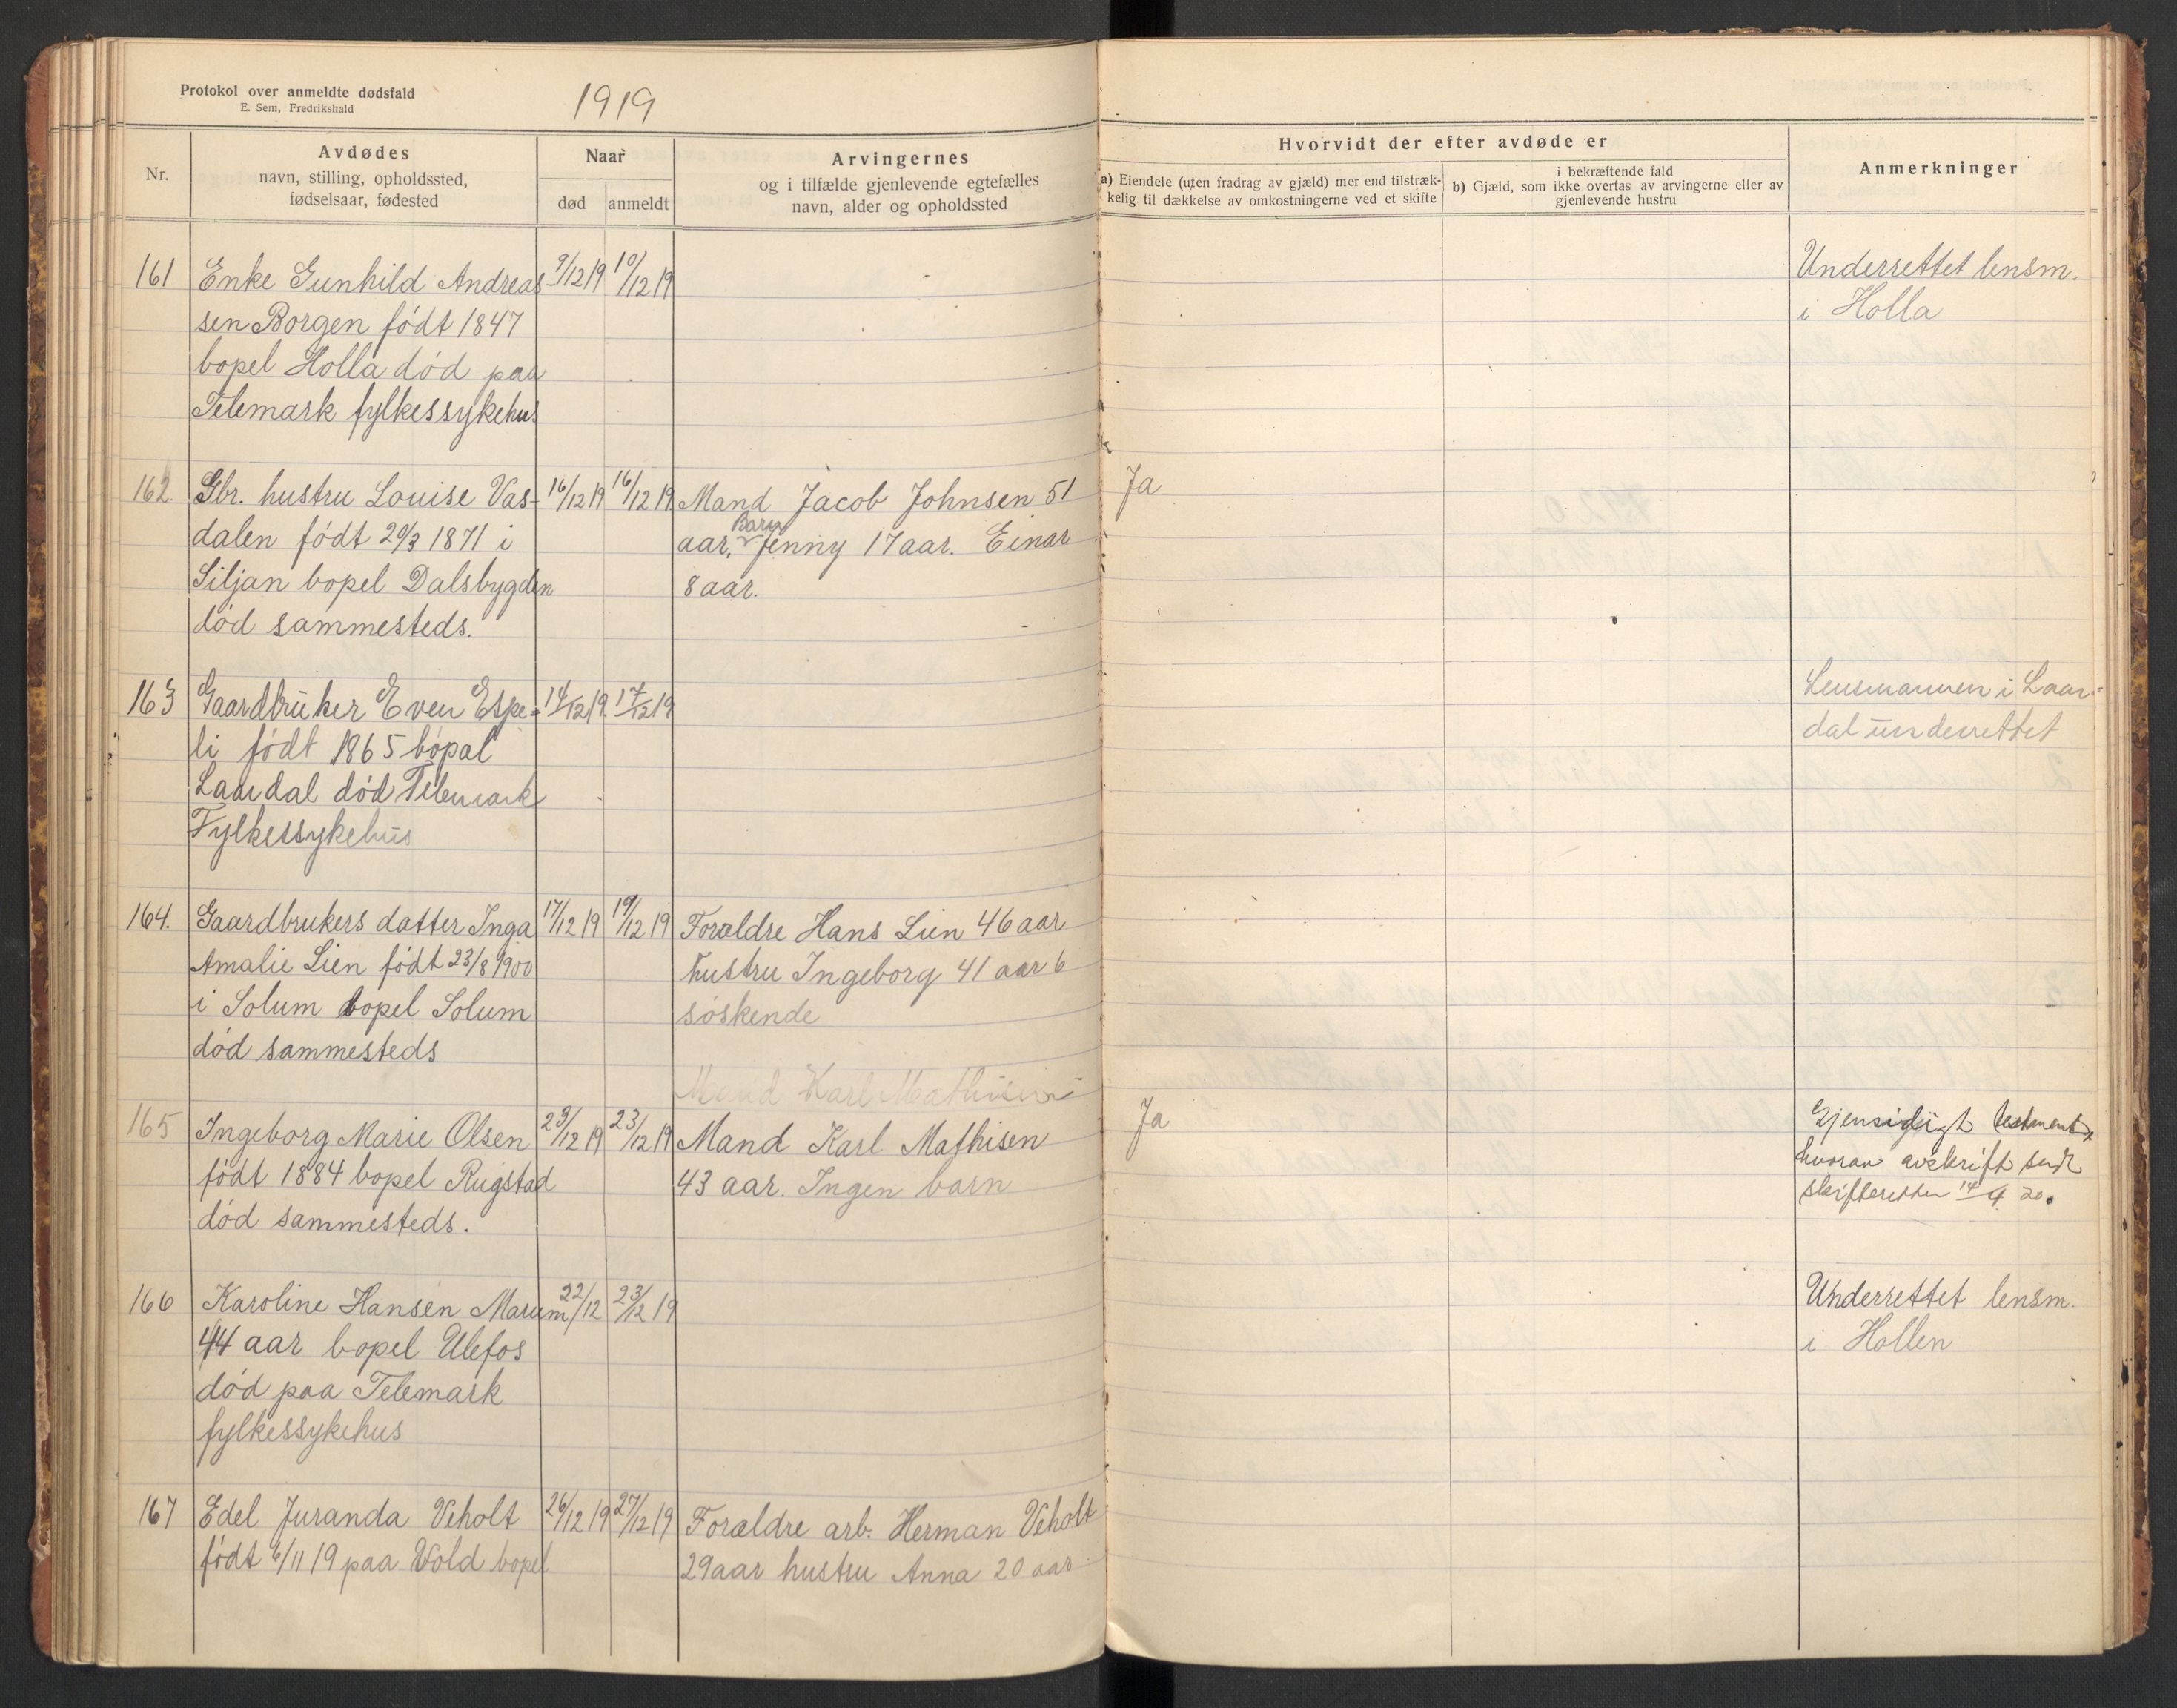 Protokol over anmeldte dødsfald
E. Sem, Fredrikshald
1919
Nr.
Avdødes
navn, stilling, opholdssted,
fødselsaar, fødested
Naar
død
anmeldt
Arvingernes
og i tilfælde gjenlevende egtefælles
navn, alder og opholdssted
Hvorvidt der efter avdøde er
a) Eiendele (uten fradrag av gjæld) mer end tilstræk-
kelig til dækkelse av omkostningerne ved et skifte
i bekræftende fald
b) Gjæld, som ikke overtas av arvingerne eller av
gjenlevende hustru
Anmerkninger
161 Enke Gunhild Andreas- 9/12 19 10/12 19
sen Borgen født 1847
bopel Holla død paa
Telemark fylkessykehus
Underrettet lensm.
i Holla
162. Gbr. hustru Louise Vas- 16/12 19 16/12 19 Mand Jacob Johnsen 51 Ja
dalen født 29/3 1871 i aar, Barn Jenny 17 aar. Einar
Siljan bopel Dalsbygden 8 aar.
død sammesteds.
163 Gaardbruker Even Espe- 14/12 19. 17/12 19
li født 1865 bopal
Laardal død Telemark
Fylkessykehus
Lensmannen i Laar-
dal underrettet
164. Gaardbrukers datter Inga 17/12 19 19/12 19 Forældre Hans Lien 46 aar
Amalie Lien født 23/8 1900 hustru Ingeborg 41 aar 6
i Solum bopel Solum søskende
død sammesteds
Mand Karl Mathisen
165 Ingeborg Marie Olsen 23/12 19 23/12 19 Mand Karl Mathisen Ja
født 1884 bopel Rugstad 43 aar. Ingen barn
død sammesteds.
Gjensidigt testament,
hvorav avskrift sendt
skifteretten 14/4 20.
166 Karoline Hansen Marum 22/12 23/12 19
44 aar bopel Ulefos
død paa Telemark
fylkessykehus
Underrettet lensm.
i Hollen
167 Edel Juranda Veholt 26/12 19 27/12 19 Forældre arb. Herman Veholt
født 6/11 19 paa Vold bopel 29 aar hustru Anna 20 aar